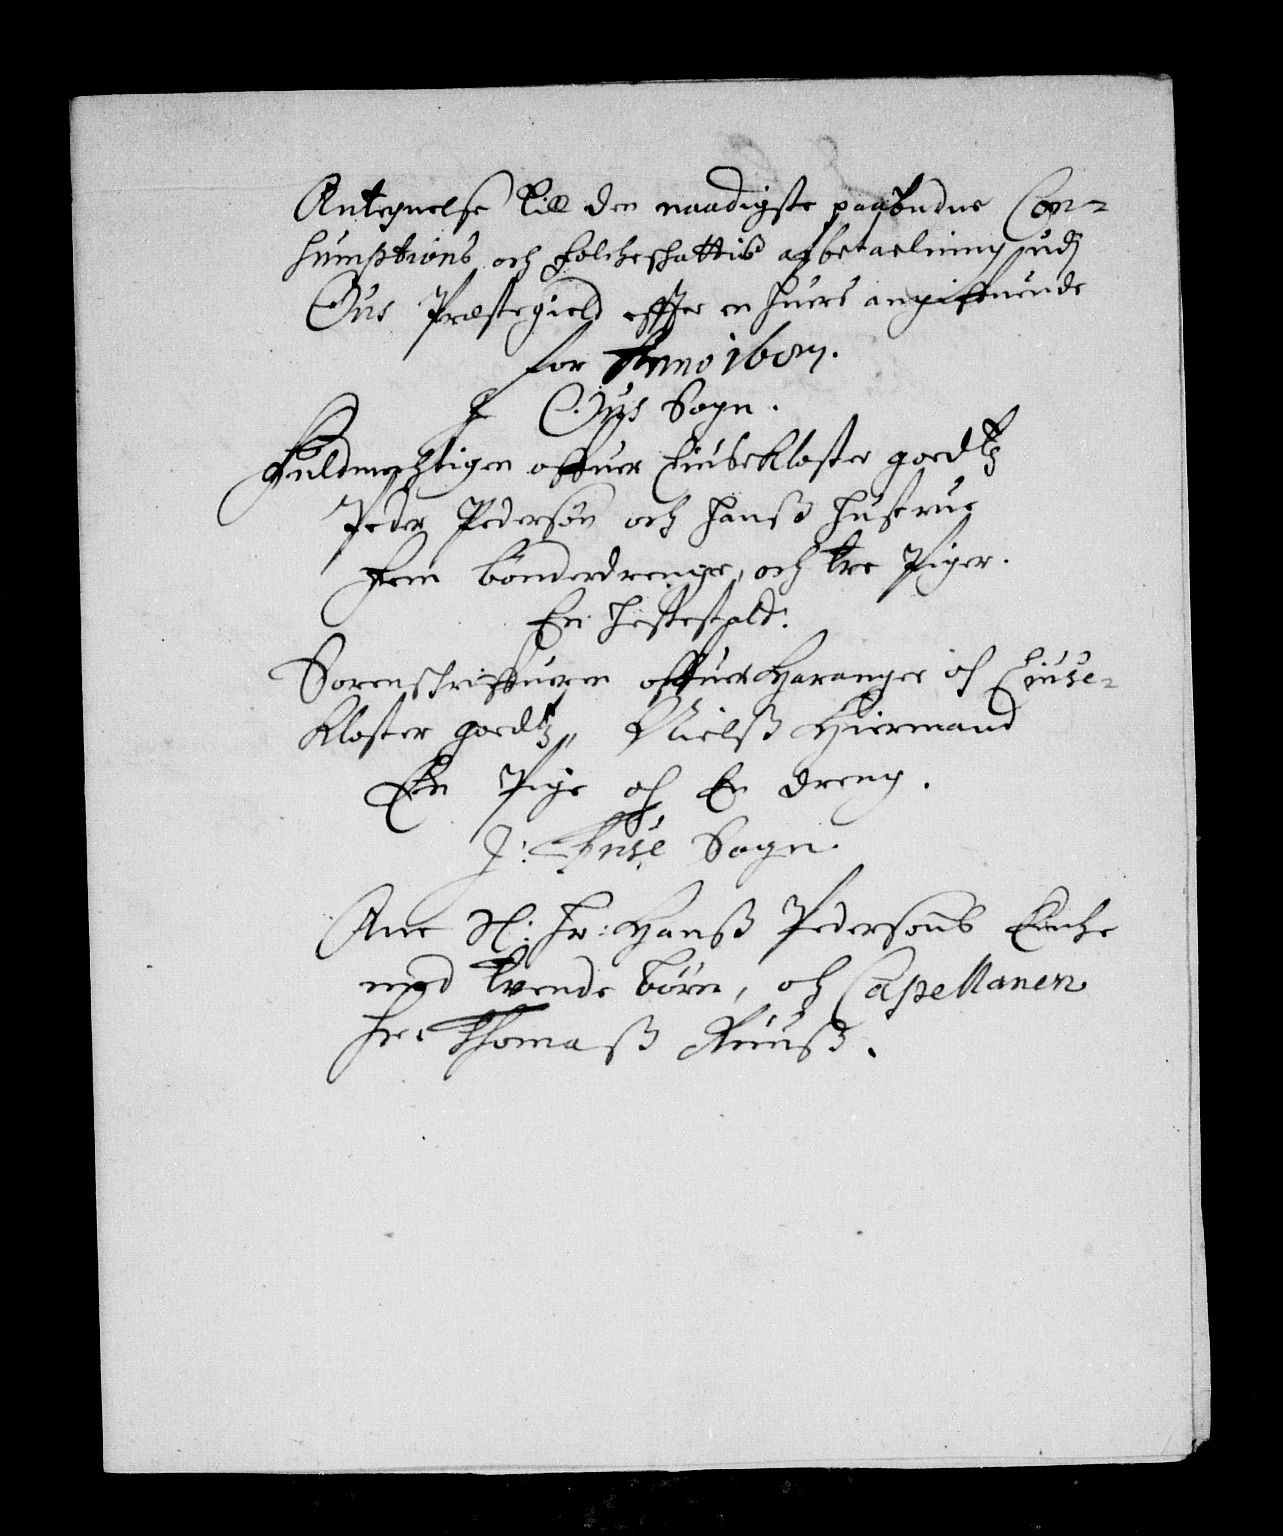 Antegnelse till den naadigste paabudne Con-
humptions och folcheskattis afbetaelning udj
Ous Præstegield effter en huers angiffuende
for Anno
J Ous Sogn.
Fuldmechtigen offuer Liusekloster goedtz
Peder Pedersøn och hanß hustrue
fem bønderdrenge, och tre Piger.
En hestestald.
Sorenskriffueren offuer Haranger och Liuse-
kloster goedtz, Nielß Hiermand
En Pige och En dreng.
J: Fuse Sogn.
Ane Sl: Hr: Hanß Pedersøns Enche
med tvende børn, och Capellanen
Hr: Thomaß Ruuß.